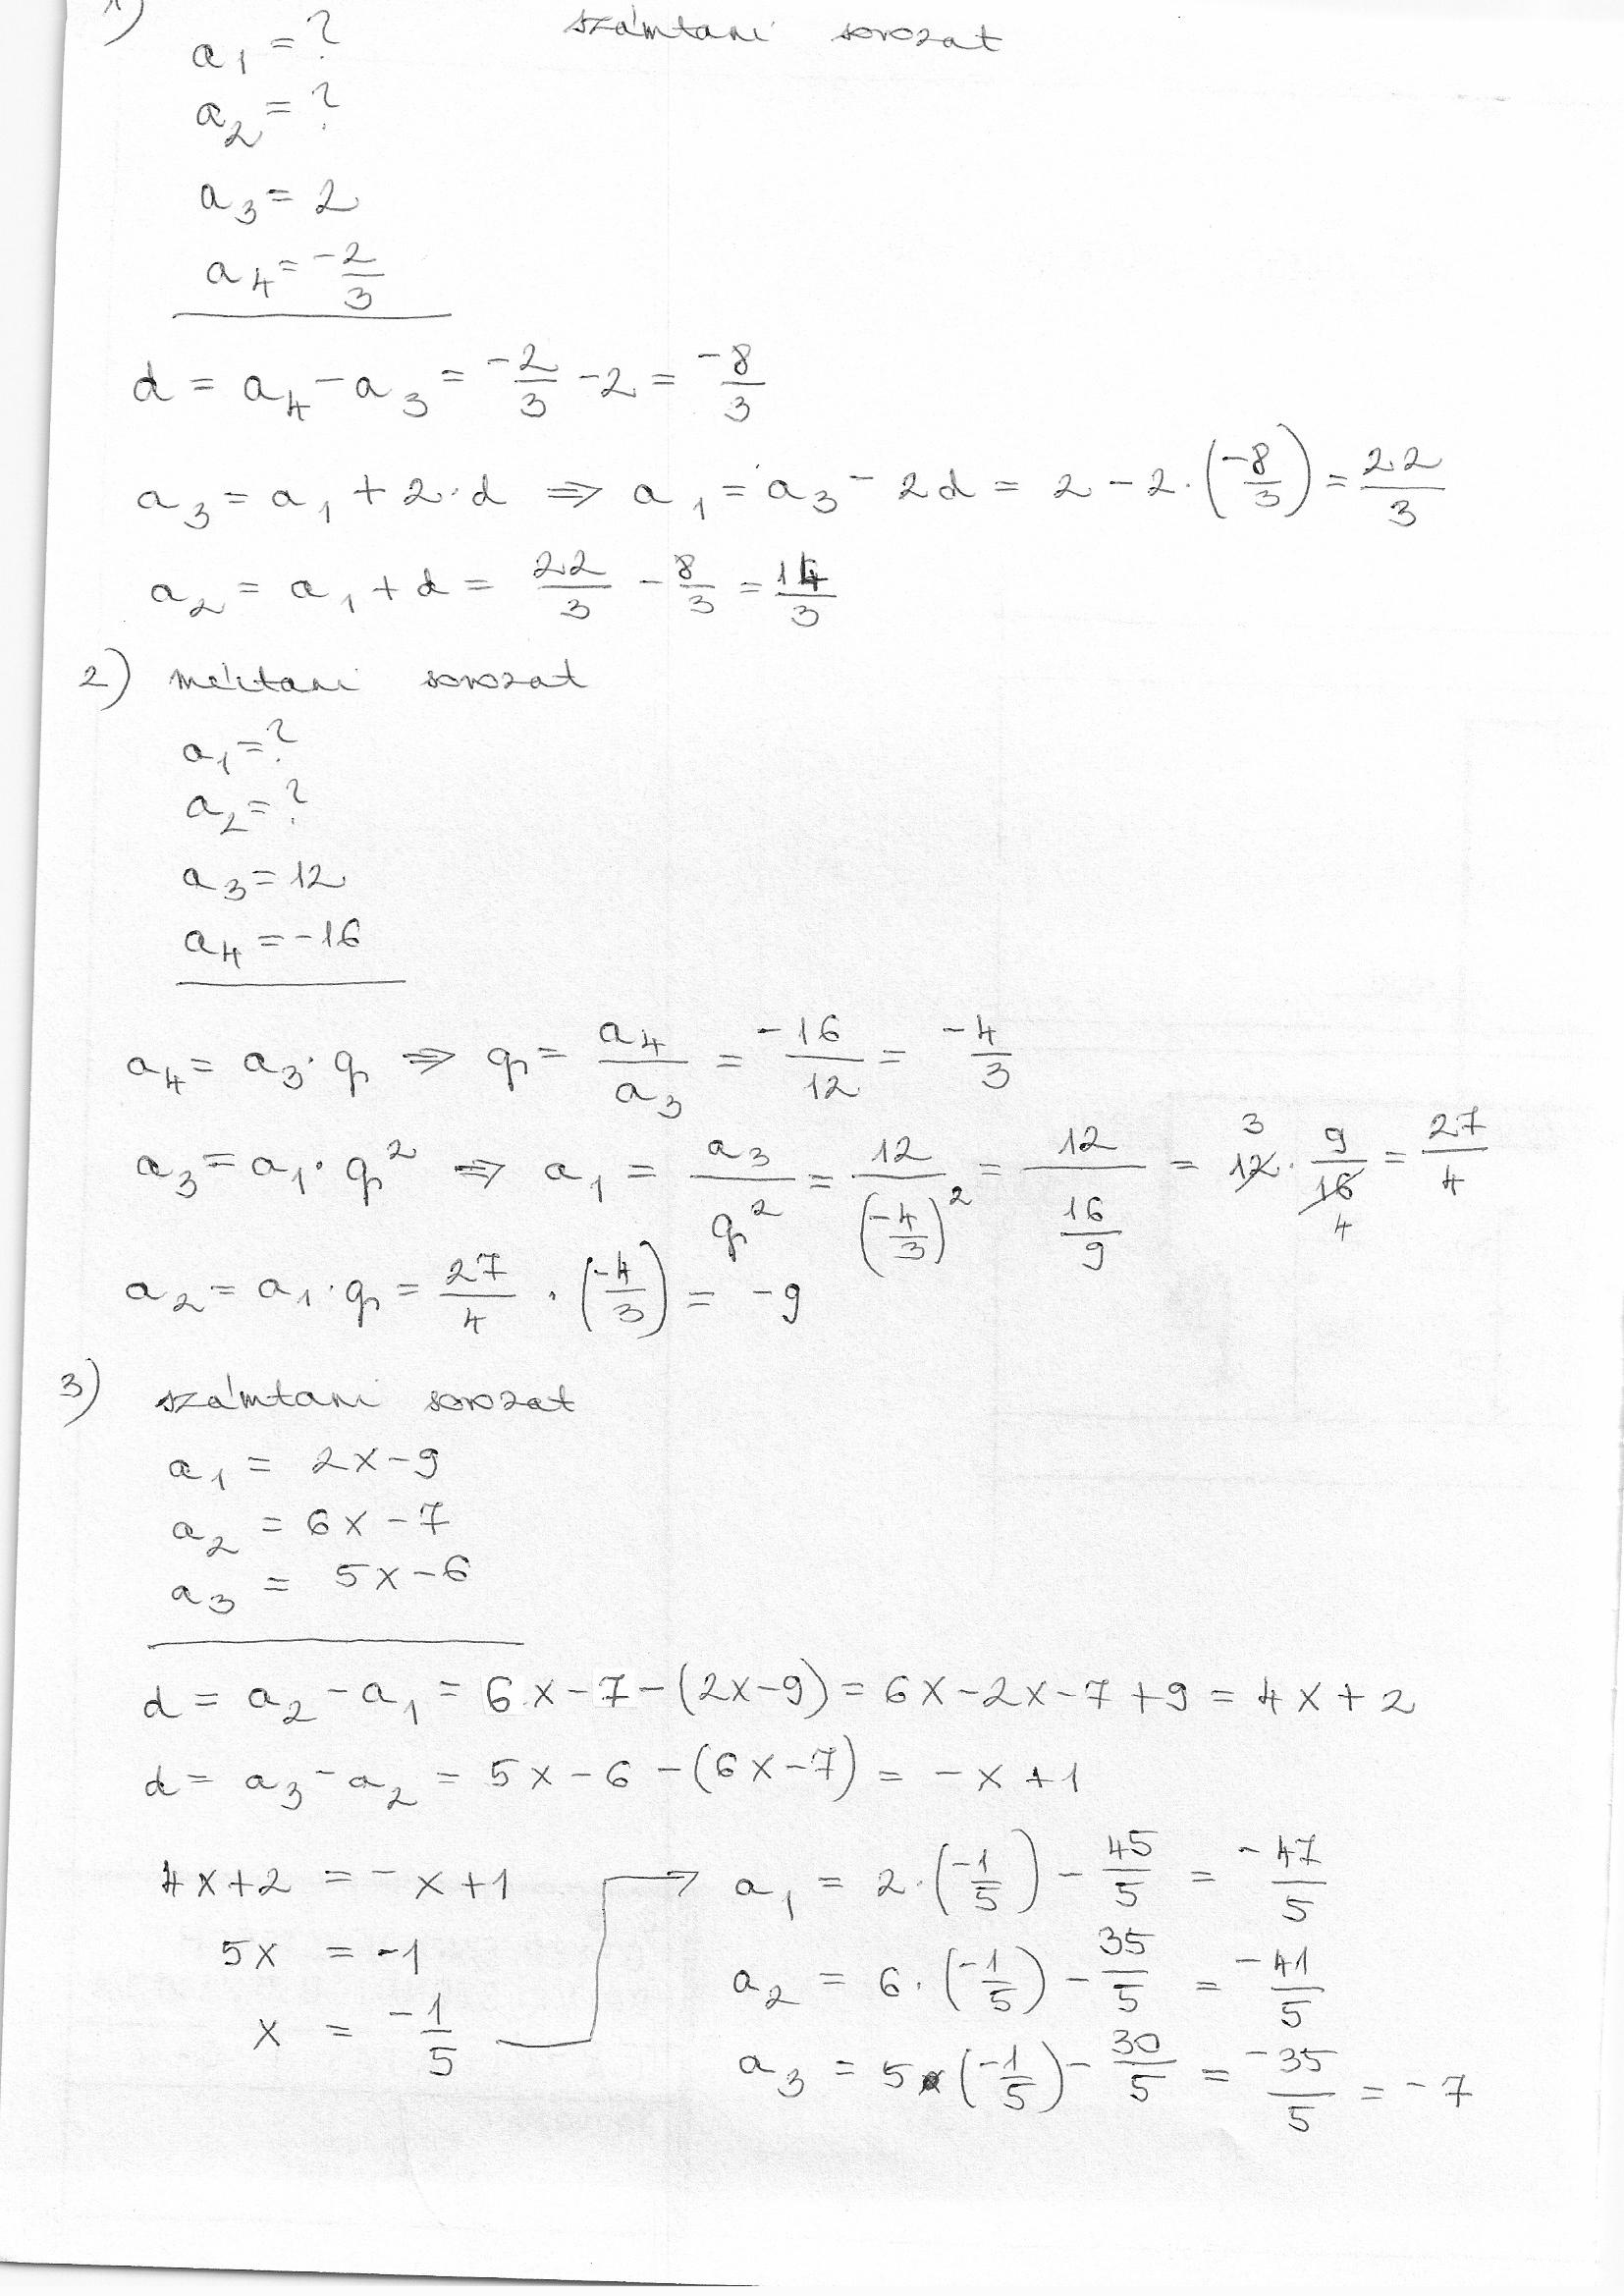 1) számtani sorozat
a₁ = ?
a₂ = ?
a₃ = 2
a₄ = -2/3
d = a₄ - a₃ = -2/3 - 2 = -8/3
a₃ = a₁ + 2·d ⇒ a₁ = a₃ - 2d = 2 - 2·(-8/3) = 22/3
a₂ = a₁ + d = 22/3 - 8/3 = 14/3
2) mértani sorozat
a₁ = ?
a₂ = ?
a₃ = 12
a₄ = -16
a₄ = a₃·q ⇒ q = a₄/a₃ = -16/12 = -4/3
a₃ = a₁·q² ⇒ a₁ = a₃/q² = 12/(-4/3)² = 12/(16/9) = 3 12 · 9/16 4 = 27/4
a₂ = a₁·q = 27/4 · (-4/3) = -9
3) számtani sorozat
a₁ = 2x-9
a₂ = 6x-7
a₃ = 5x-6
d = a₂ - a₁ = 6x-7-(2x-9) = 6x-2x-7+9 = 4x+2
d = a₃ - a₂ = 5x-6-(6x-7) = -x+1
4x+2 = -x+1
5x = -1
x = -1/5
→ a₁ = 2·(-1/5) - 45/5 = -47/5
a₂ = 6·(-1/5) - 35/5 = -41/5
a₃ = 5·(-1/5) - 30/5 = -35/5 = -7